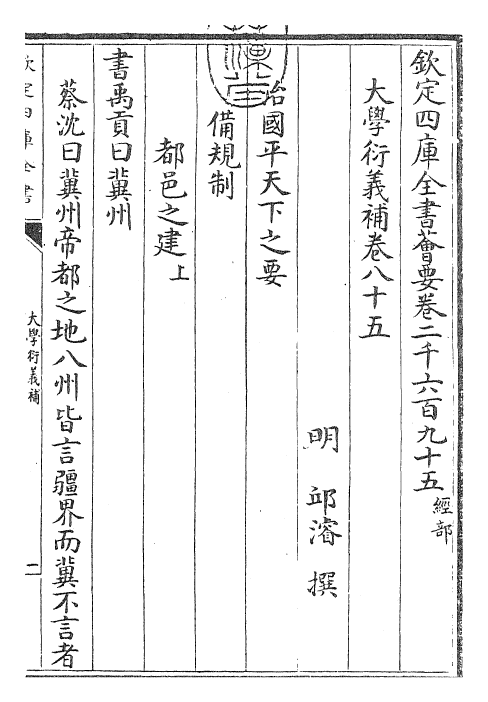 欽定四庫全書薈要卷二千六百九十五經部
大學衍義補卷八十五
明 邱濬 撰
治國平天下之要
備規制
都邑之建上
書禹貢曰冀州
蔡沈曰冀州帝都之地八州皆言疆界而冀不言者
欽定四庫全書
大學衍義補